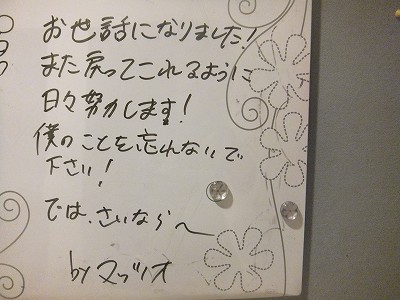 お世話になりました!
また戻ってこれるように
日々努力します!
僕のことを忘れないで
下さい!
では、さいなら〜
by マツオ